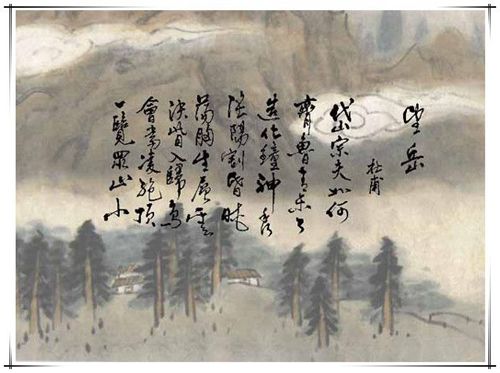 望岳
杜甫
岱宗夫如何
齊魯青未了
造化鐘神秀
陰陽割昏曉
蕩胸生層雲
決眥入歸鳥
會當凌絕頂
一覽眾山小